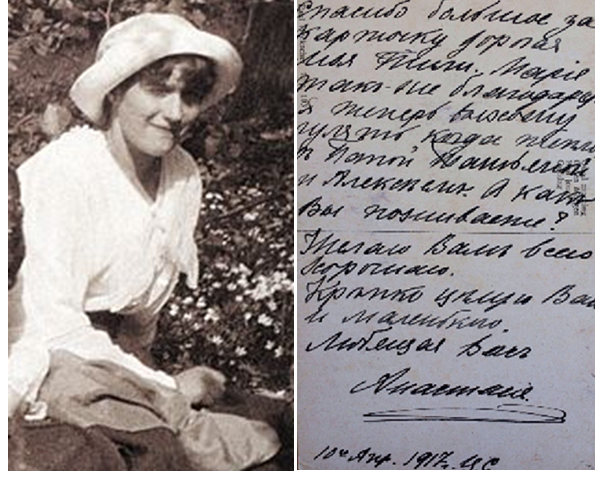 Спасибо большое за
карточку дорогая
моя Тити. Марія
такъ-же благодаритъ
Я теперь выхожу
гулять когда тепло
съ Папой Татьяной
и Алексѣемъ. А какъ
Вы поживаете?
Желаю Вамъ всего
хорошаго.
Крѣпко цѣлую Васъ
и маленькаго.
Любящая Васъ
Анастасія.
10го Апр. 1917 г. ЦС